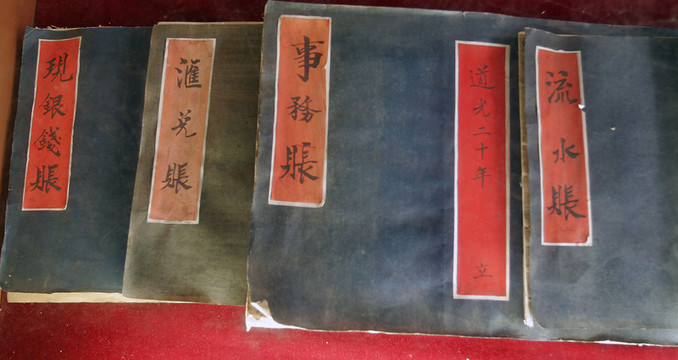 現銀錢賬
滙兌賬
事務賬
道光二十年 立
流水賬